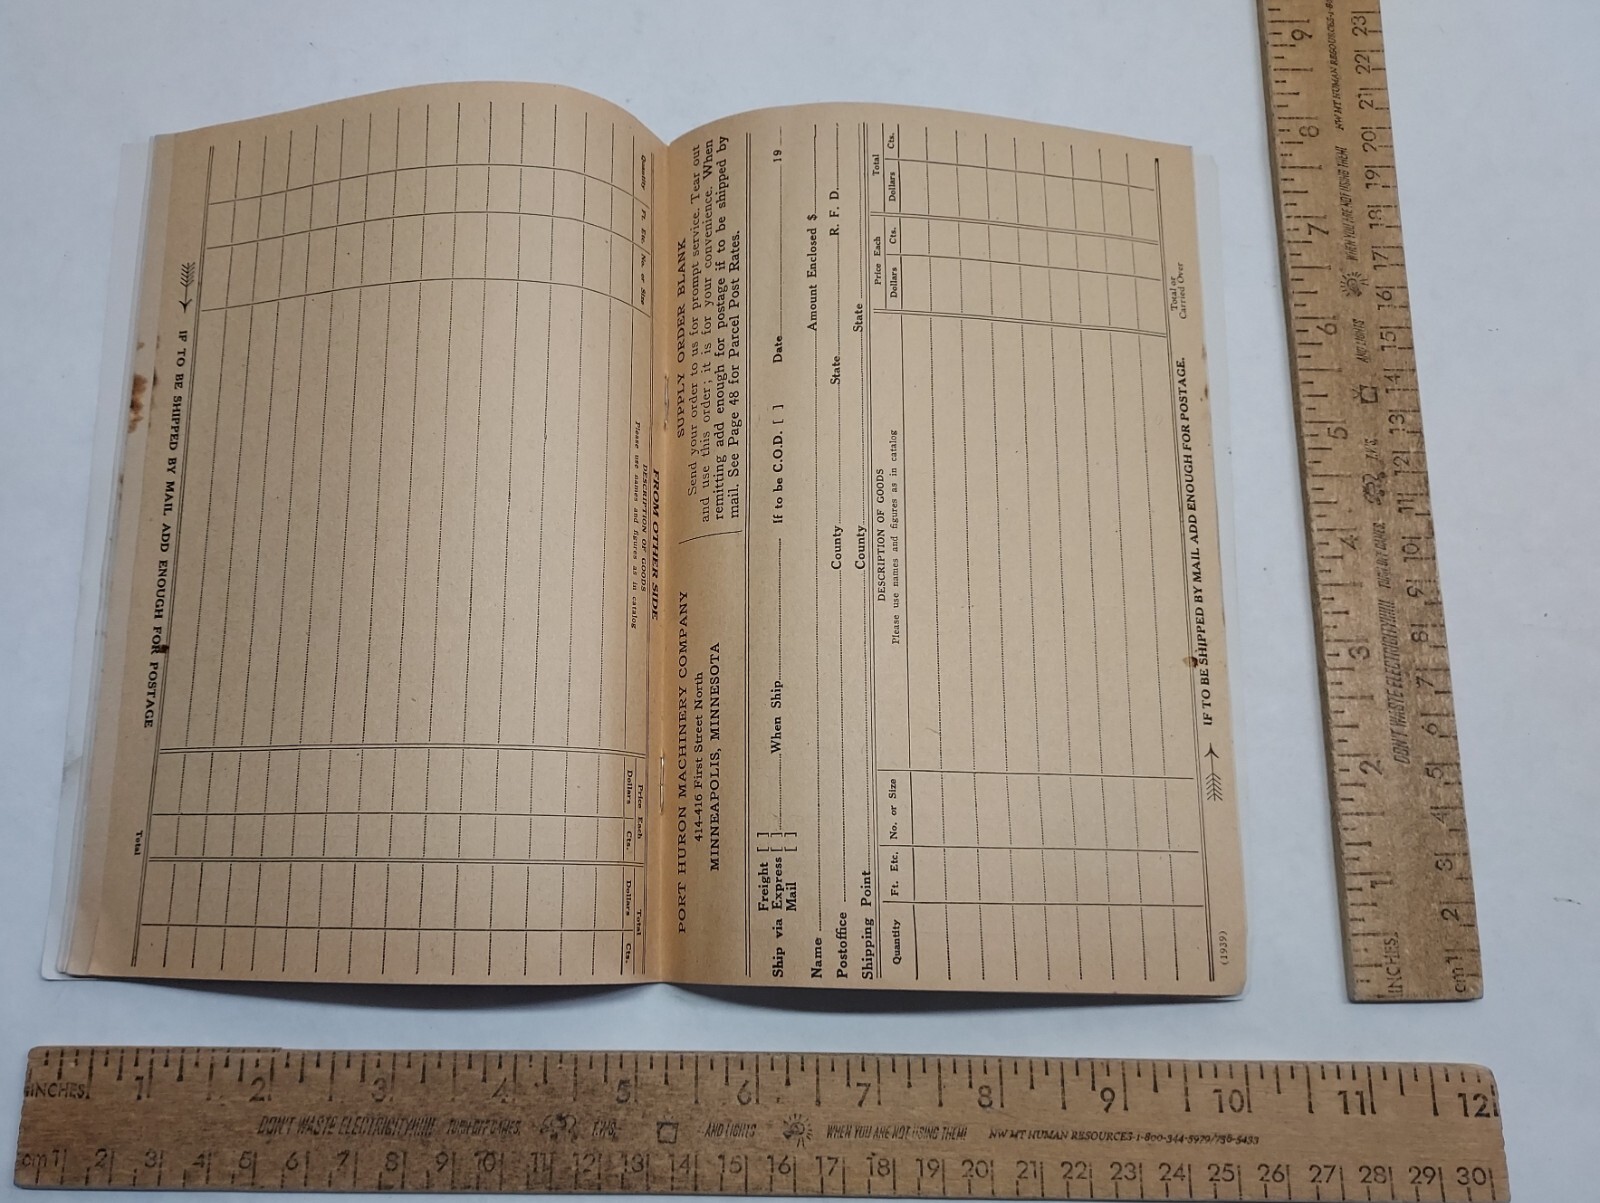 FROM OTHER SIDE
Quantity Ft. Etc. No. or Size DESCRIPTION OF GOODS Price Each Total
Please use names and figures as in catalog Dollars Cts. Dollars Cts.
IF TO BE SHIPPED BY MAIL ADD ENOUGH FOR POSTAGE
Total
PORT HURON MACHINERY COMPANY
414-416 First Street North
MINNEAPOLIS, MINNESOTA
SUPPLY ORDER BLANK
Send your order to us for prompt service. Tear out
and use this order; it is for your convenience. When
remitting add enough for postage if to be shipped by
mail. See Page 48 for Parcel Post Rates.
Freight [ ]
Ship via Express [ ] When Ship If to be C.O.D. [ ] Date 19
Mail [ ]
Name Amount Enclosed $
Postoffice County State R. F. D.
Shipping Point County State
Quantity Ft. Etc. No. or Size DESCRIPTION OF GOODS Price Each Total
Please use names and figures as in catalog Dollars Cts. Dollars Cts.
Total or
Carried Over
IF TO BE SHIPPED BY MAIL ADD ENOUGH FOR POSTAGE.
(1939)
INCHES 1 2 3 4 5 6 7 8 9 10 11 12
DON'T WASTE ELECTRICITY!!!!! TURN OFF GAMES, T.V.'S, AND LIGHTS WHEN YOU ARE NOT USING THEM! NW MT HUMAN RESOURCES-1-800-344-5979/756-5433
cm 1 2 3 4 5 6 7 8 9 10 11 12 13 14 15 16 17 18 19 20 21 22 23 24 25 26 27 28 29 30
INCHES 1 2 3 4 5 6 7 8 9
DON'T WASTE ELECTRICITY!!!!! TURN OFF GAMES, T.V.'S, AND LIGHTS WHEN YOU ARE NOT USING THEM! NW MT HUMAN RESOURCES-1-8
cm 1 2 3 4 5 6 7 8 9 10 11 12 13 14 15 16 17 18 19 20 21 22 23